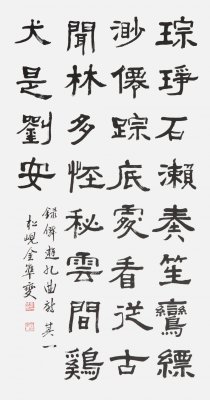 琮琤石瀨奏笙鸞縹
渺僊踪底處看從古
聞林多怪秘雲間鷄
犬是劉安
錄遊曲詩其一
松峴金準燮